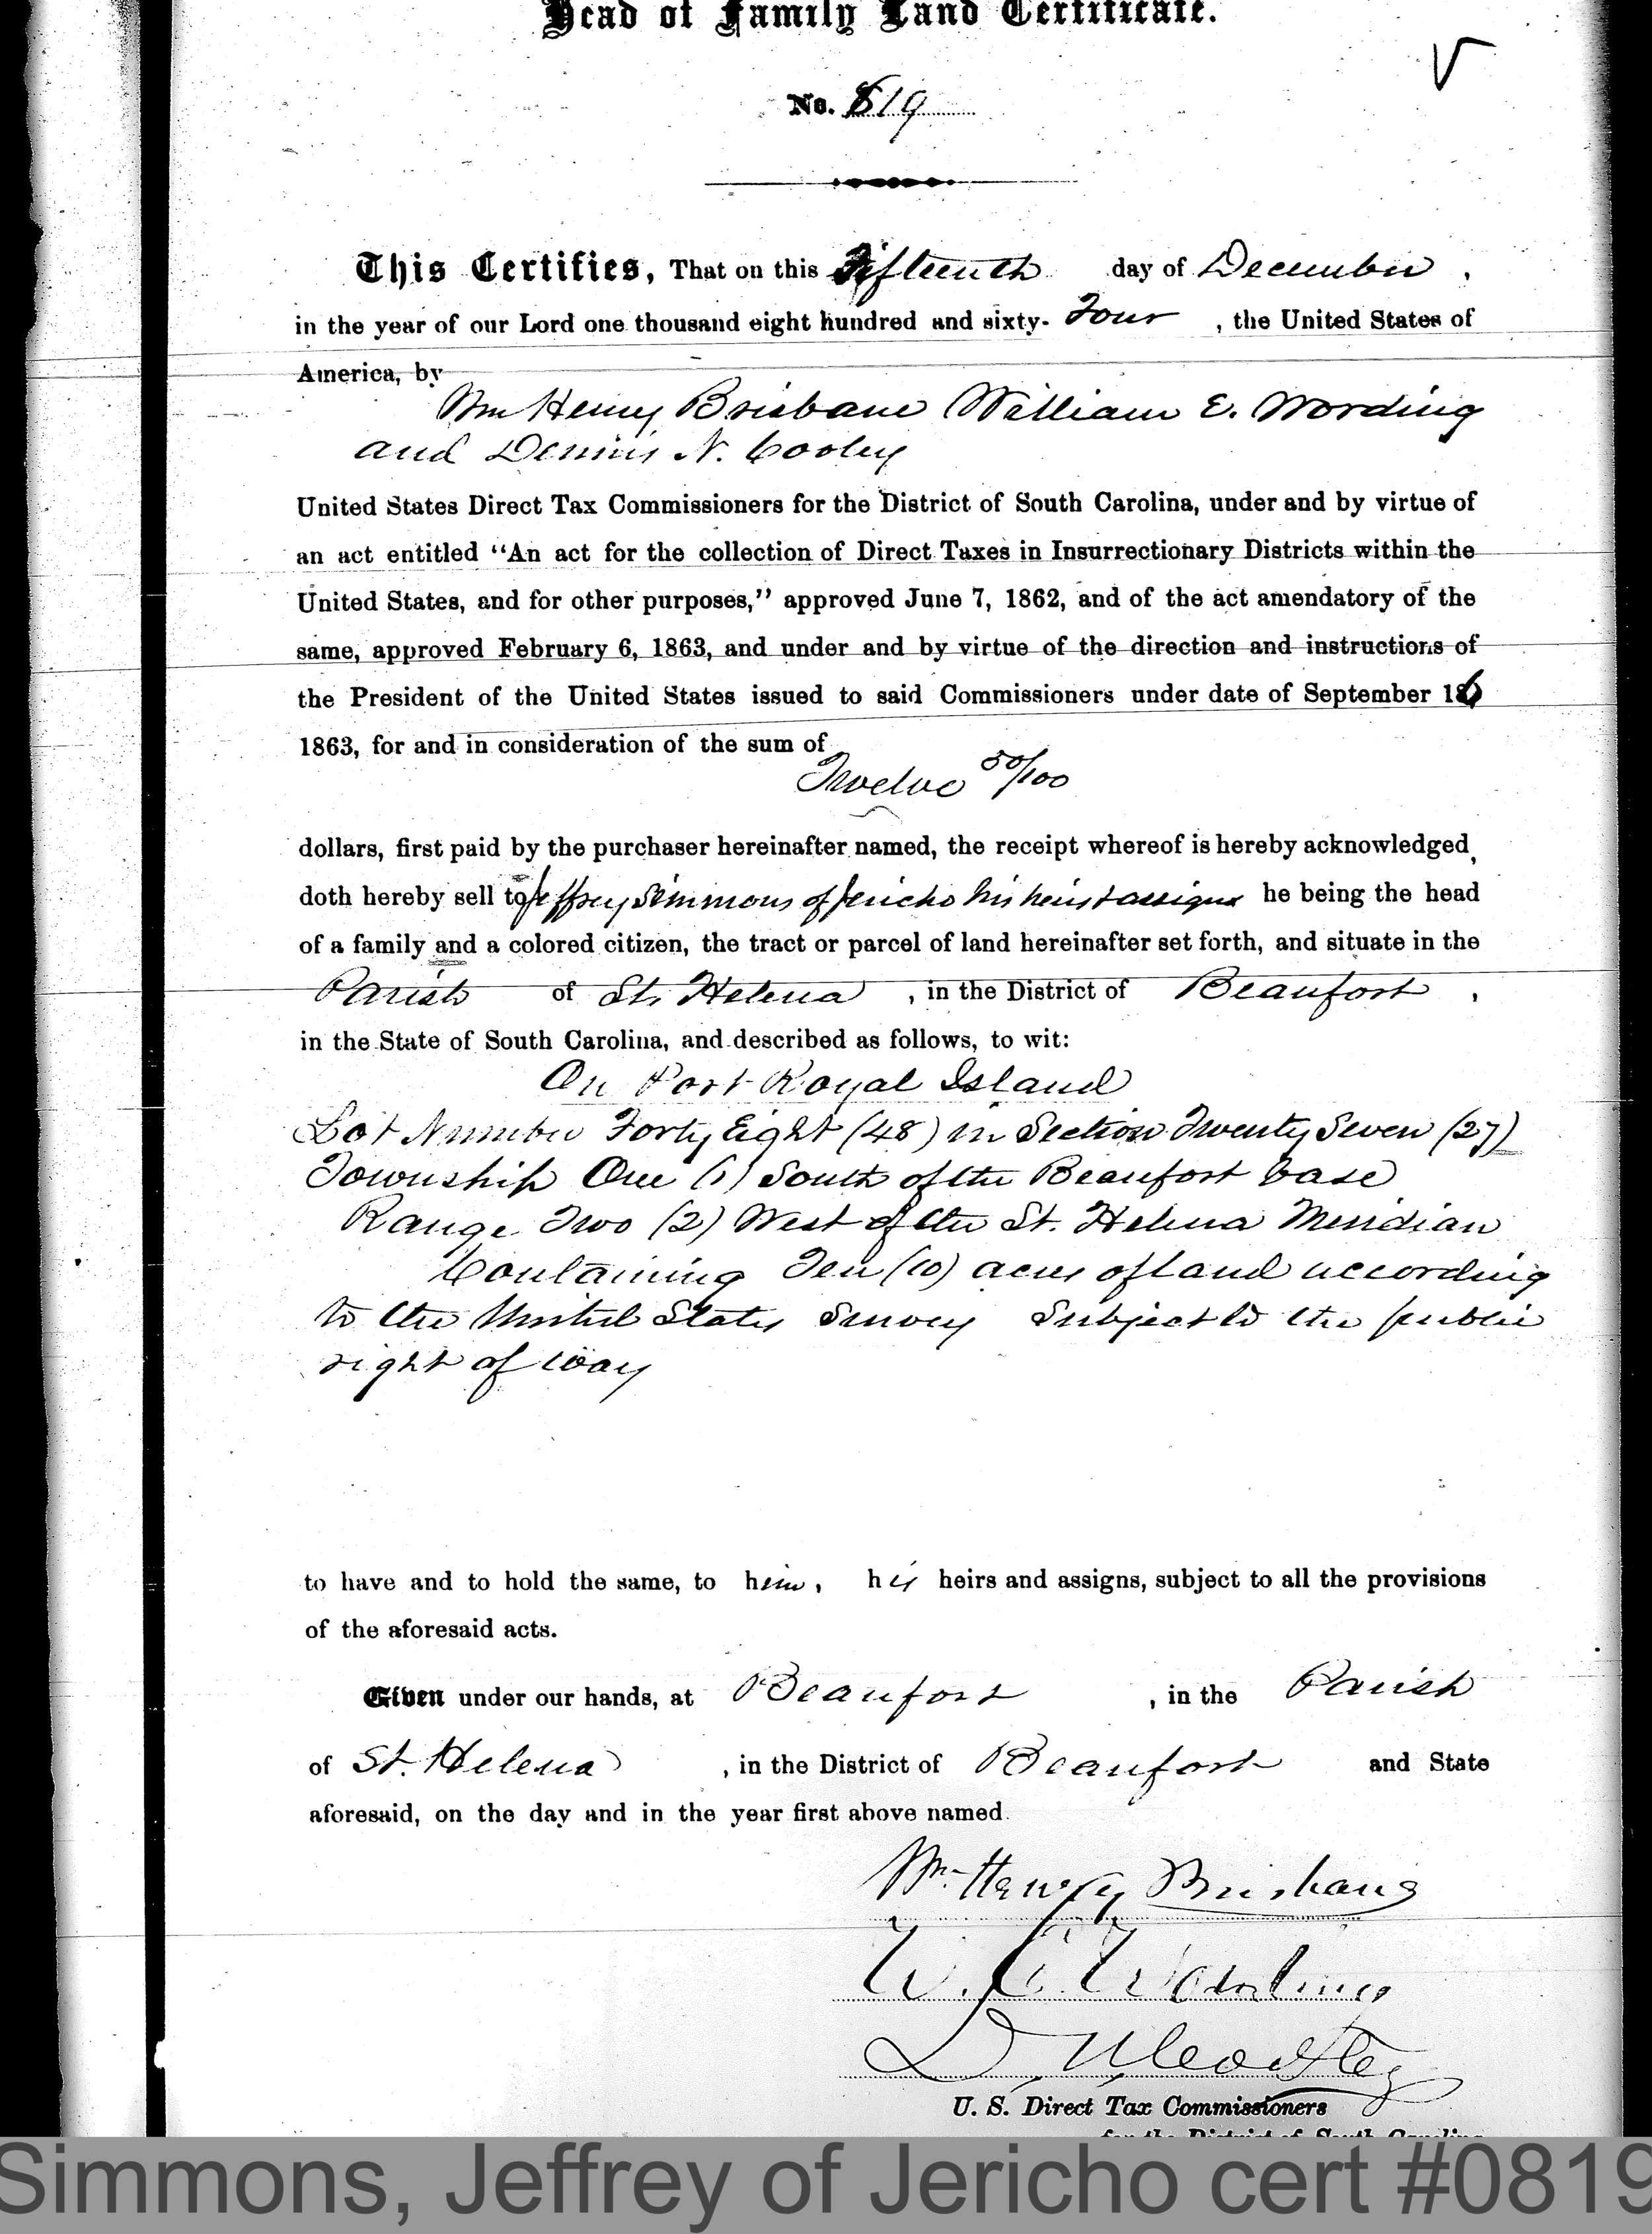 Head of Family Land Certificate.
No. 819
This Certifies, That on this Fifteenth day of December,
in the year of our Lord one thousand eight hundred and sixty-Four, the United States of
America, by
Wm Henry Brisbane William E. Wording
and Dennis N. Cooley
United States Direct Tax Commissioners for the District of South Carolina, under and by virtue of
an act entitled "An act for the collection of Direct Taxes in Insurrectionary Districts within the
United States, and for other purposes," approved June 7, 1862, and of the act amendatory of the
same, approved February 6, 1863, and under and by virtue of the direction and instructions of
the President of the United States issued to said Commissioners under date of September 16
1863, for and in consideration of the sum of
Twelve 50/100
dollars, first paid by the purchaser hereinafter named, the receipt whereof is hereby acknowledged,
doth hereby sell to Jeffrey Simmons of Jericho his heirs & assigns he being the head
of a family and a colored citizen, the tract or parcel of land hereinafter set forth, and situate in the
Parish of St. Helena, in the District of Beaufort,
in the State of South Carolina, and described as follows, to wit:
On Port Royal Island
Lot Number Forty Eight (48) in Section Twenty Seven (27)
Township One (1) South of the Beaufort base
Range Two (2) West of the St. Helena Meridian
Containing Ten (10) acres of land according
to the United States Survey Subject to the public
right of way
to have and to hold the same, to him, his heirs and assigns, subject to all the provisions
of the aforesaid acts.
Given under our hands, at Beaufort, in the Parish
of St. Helena, in the District of Beaufort and State
aforesaid, on the day and in the year first above named.
Wm Henry Brisbane
W. E. Wording
D. N. Cooley
U. S. Direct Tax Commissioners
for the District of South Carolina
Simmons, Jeffrey of Jericho cert #0819